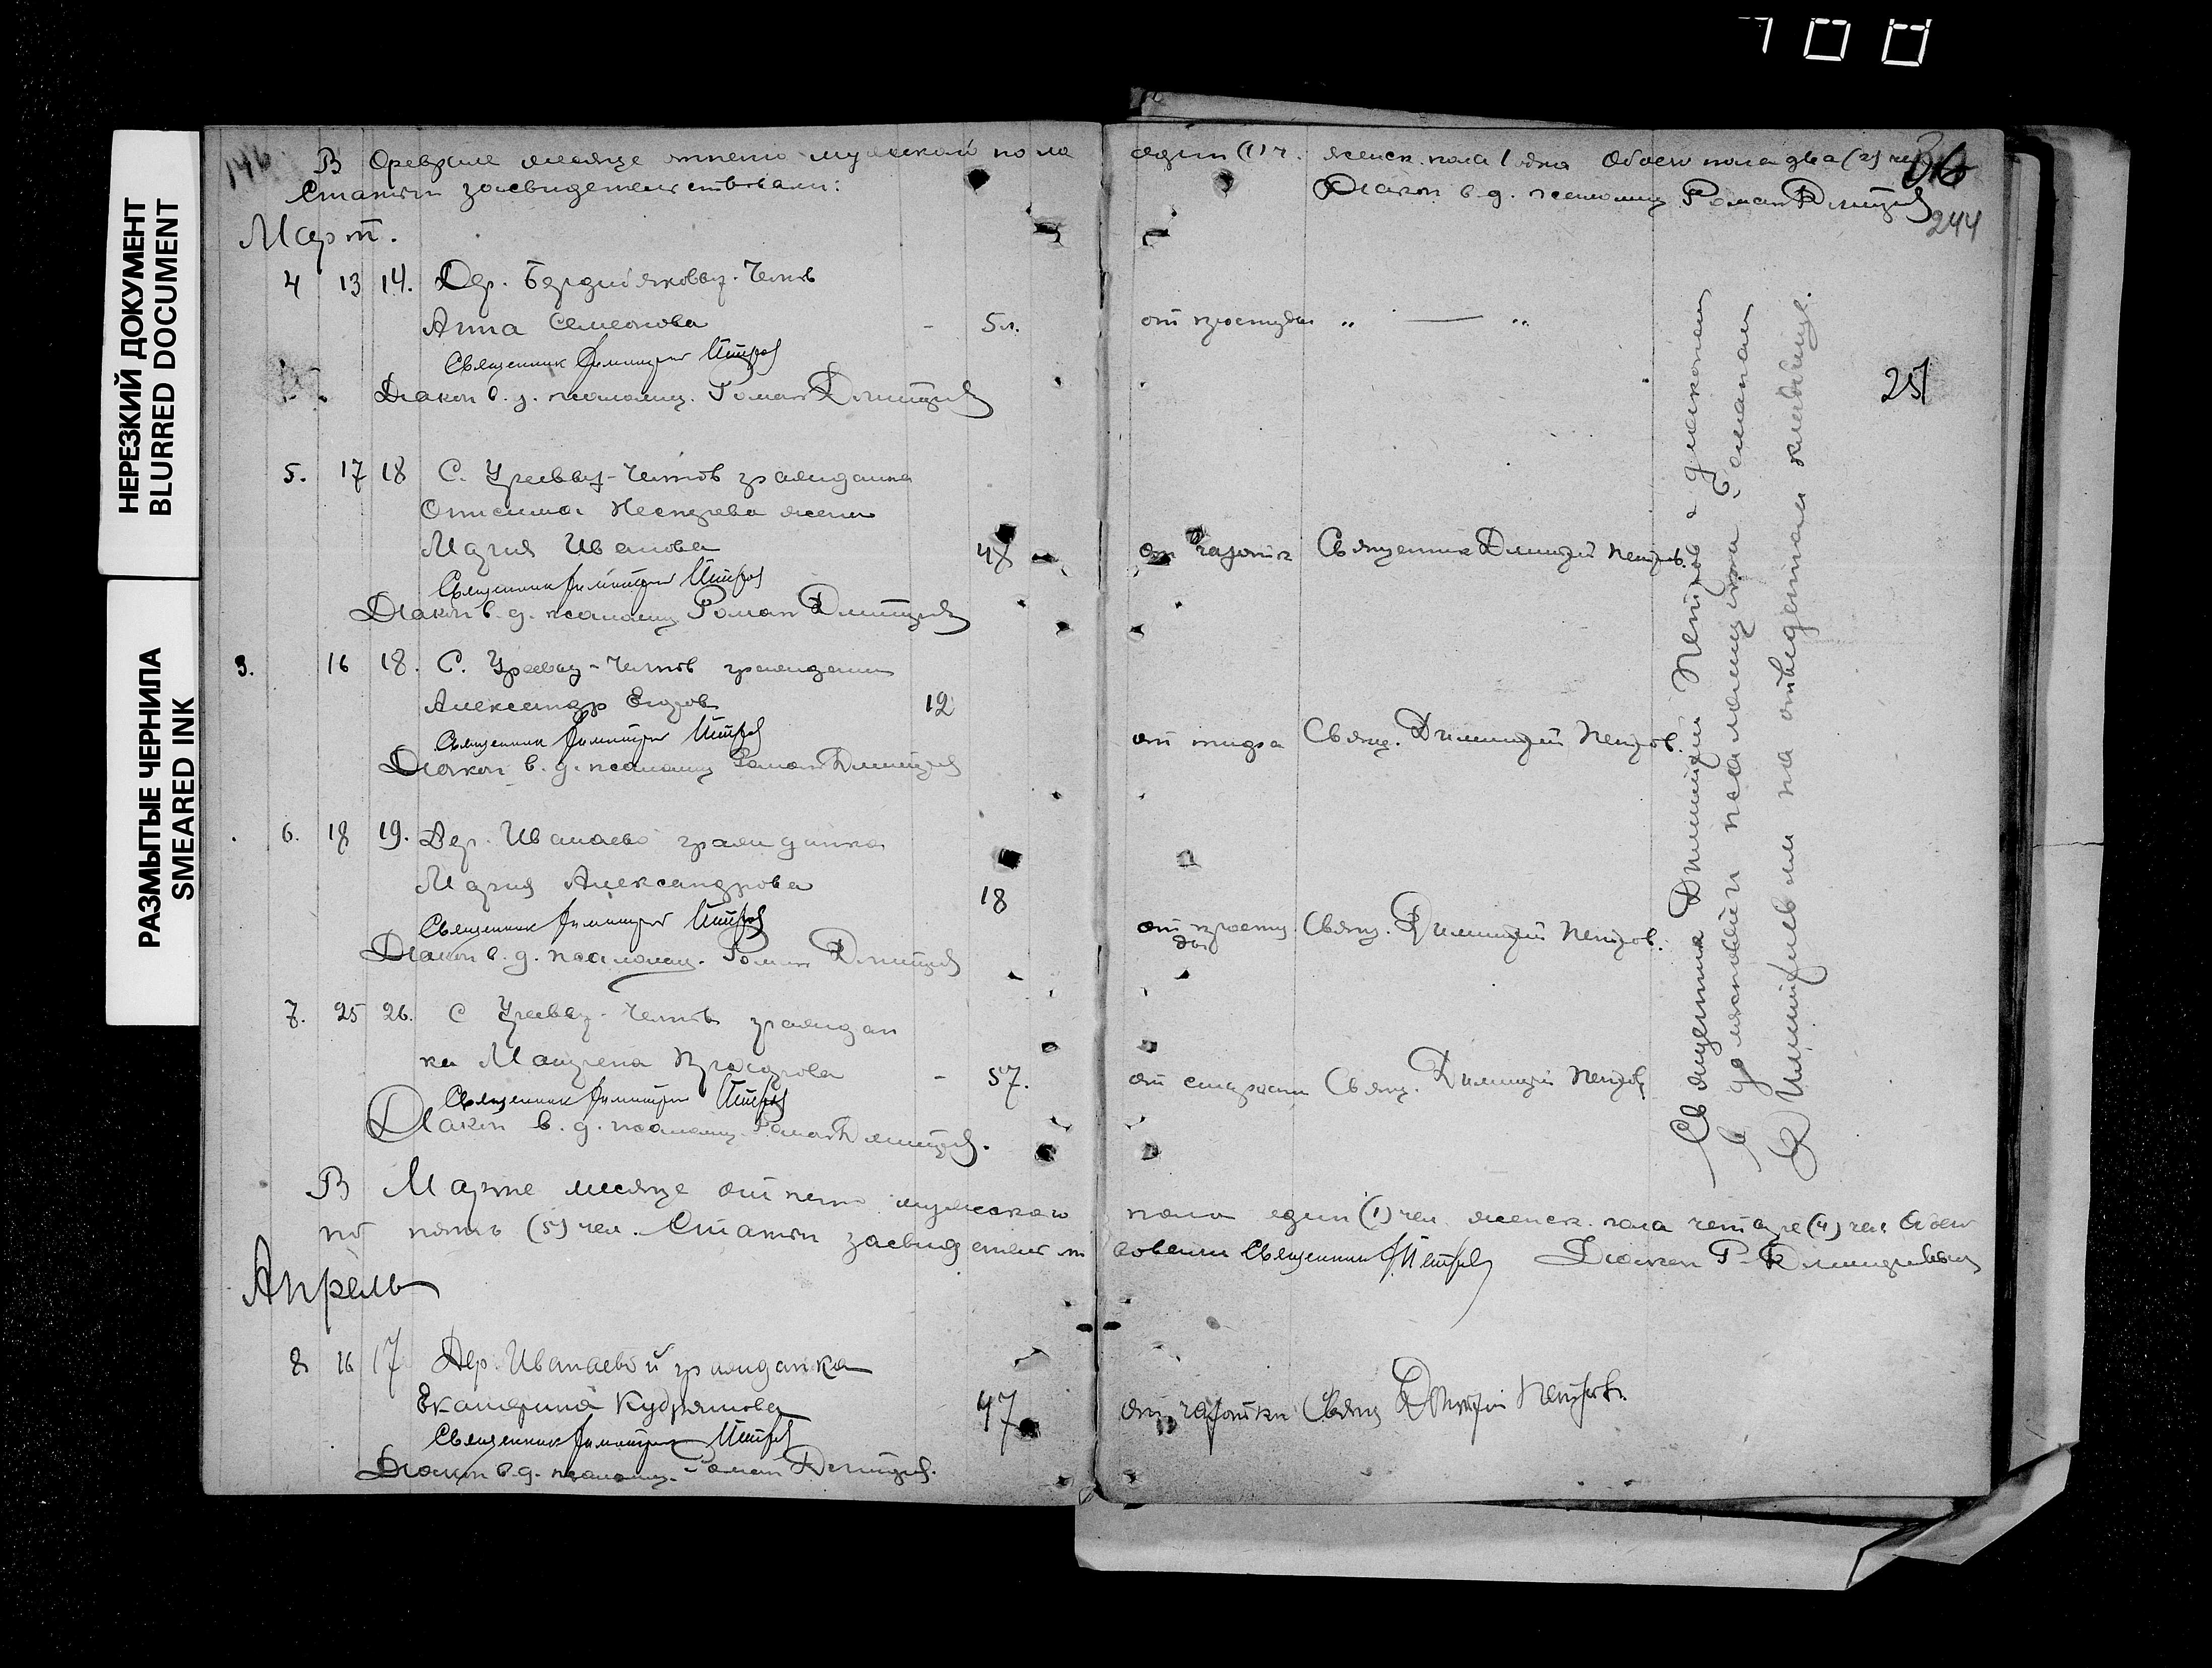 НЕРЕЗКИЙ ДОКУМЕНТ
BLURRED DOCUMENT
РАЗМЫТЫЕ ЧЕРНИЛА
SMEARED INK
146
В Феврале месяце отпето мужской пола
Статьи засвидетельствовали:
Март.
4 13 14. Дер.
Анна Семенова - 5 л.
Священник Димитрий Петров
Диакон в. д. псаломщ. Роман Дмитриев
5. 17 18 С. гражданина
Онисима Нестерева жена
Мария Иванова 48
Священник Димитрий Петров
Диакон в. д. псаломщ Роман Дмитриев
3. 16 18. С. гражданин
Александр Егоров 12
Священник Димитрий Петров
Диакон в. д. псаломщ Роман Дмитриев
6. 18 19. Дер. Иванаево гражданка
Мария Александрова 18
Священник Димитрий Петров
Диакон в. д. псаломщ. Роман Дмитриев
7. 25 26. С граждан
ка Матрена - 57.
Священник Димитрий Петров
Диакон в. д. псаломщ. Роман Дмитриев.
В Марте месяце отпето мужскаго
по пять (5) чел. Статьи засвидетельст
Апрель
8 16 17 Дер. Иванаевой гражданка
Екатерина Кудряшова 47
Священник Димитрий Петров
Диакон в. д. псаломщ. Роман Дмитриев.
един (1) ч. женск. пола 1 одна Обоего пола два (2) чел
Диакон в. д. псаломщ Роман Дмитриев
36
244
251
от простуды „ — „
от чахотк Священник Димитрий Петров.
от тифа Свящ. Димитрий Петров.
от просту
ды Свящ. Димитрий Петров.
от старости Свящ. Димитрий Петров
Священник Димитрий Петров с диаконом
в должности псаломщика Романом
Димитриевым на отведенном кладбище.
пола един (1) чел женск. пола четыре (4) чел Обоего
вовали Священник Д. Петров Диакон Р. Дмитриевым
от чахотки Свящ Димитрий Петров.